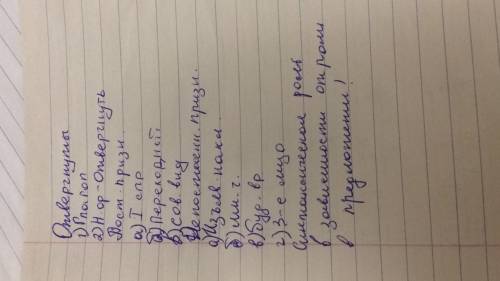 Отвергнуты
1) Глагол
2) Н.ф - Отвергнуть
Пост. призн.
а) I спр
б) Переходный
в) сов. вид
3) Непостоянн. призн.
а) Изъяв. накл.
б) мн. ч.
в) Буд. вр
г) 3-е лицо
Синтаксическая роль
в зависимости от роли
в предложении!